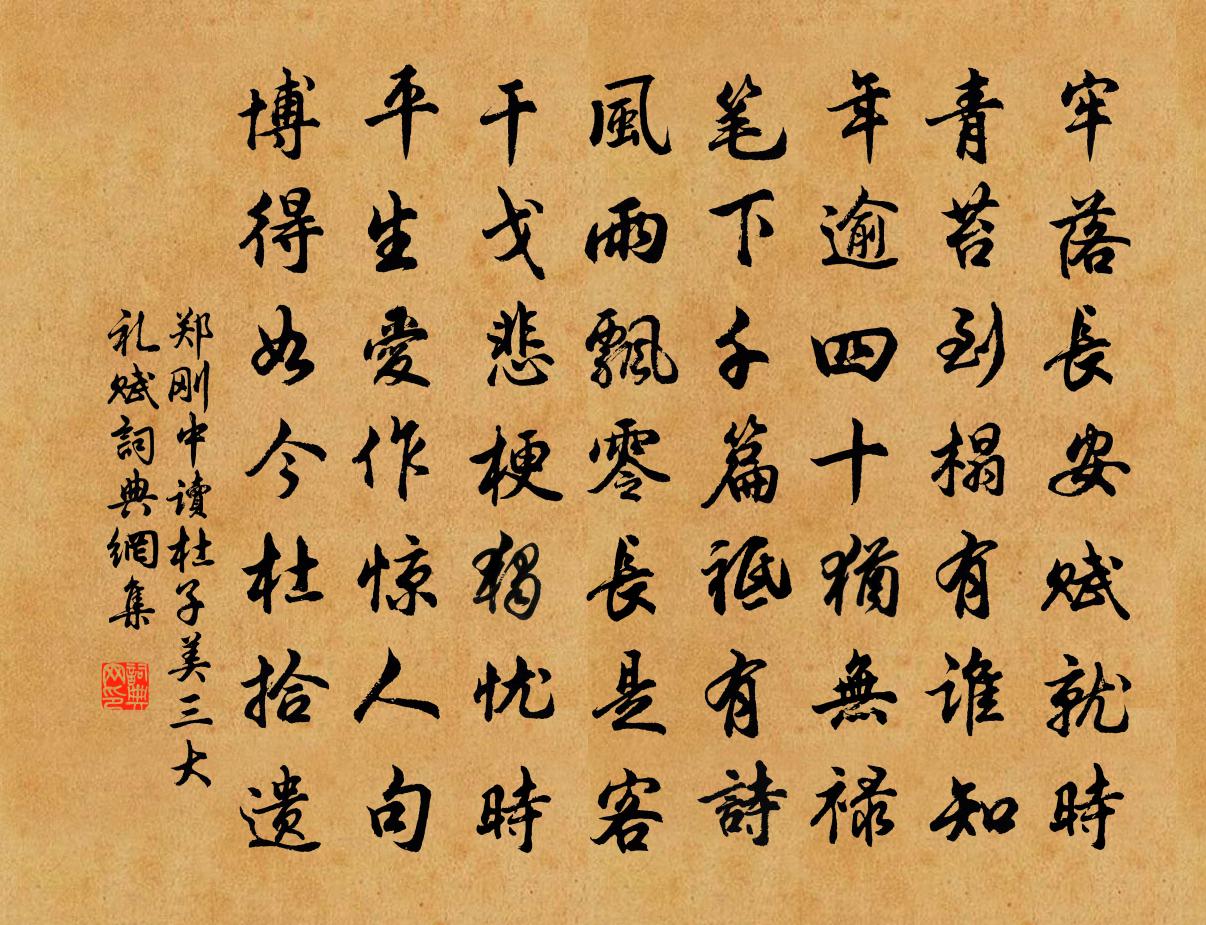 牢落長安赋就時
青苔到榻有谁知
年逾四十猶無禄
笔下千篇祗有詩
風雨飄零長是客
干戈悲梗独忧時
平生愛作惊人句
博得如今杜拾遗
郑刚中讀杜子美三大
礼赋詞典網集
詞典网印